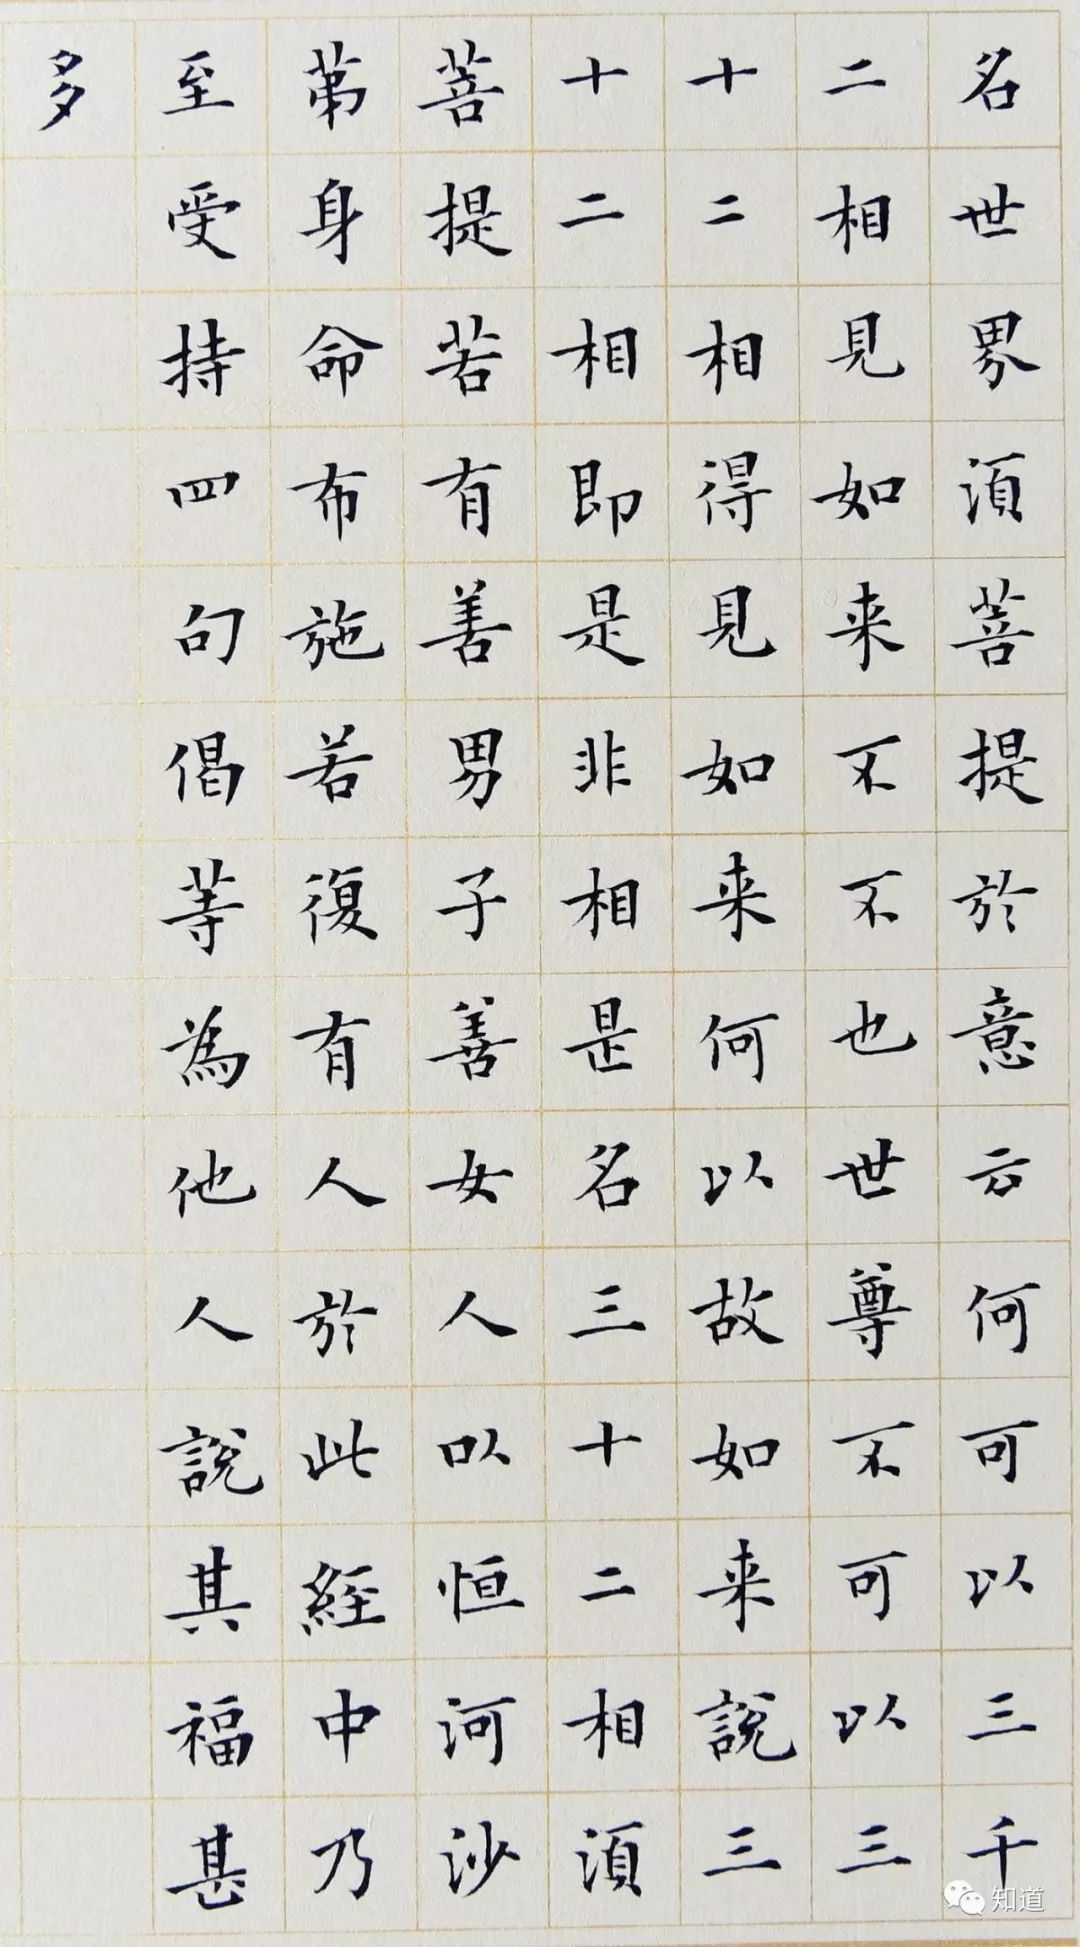 名世界須菩提於意云何可以三千
二相見如来不不也世尊不可以三
十二相得見如来何以故如来說三
十二相即是非相是名三十二相須
菩提若有善男子善女人以恒河沙
苐身命布施若復有人於此經中乃
至受持四句偈等為他人說其福甚
多
知道